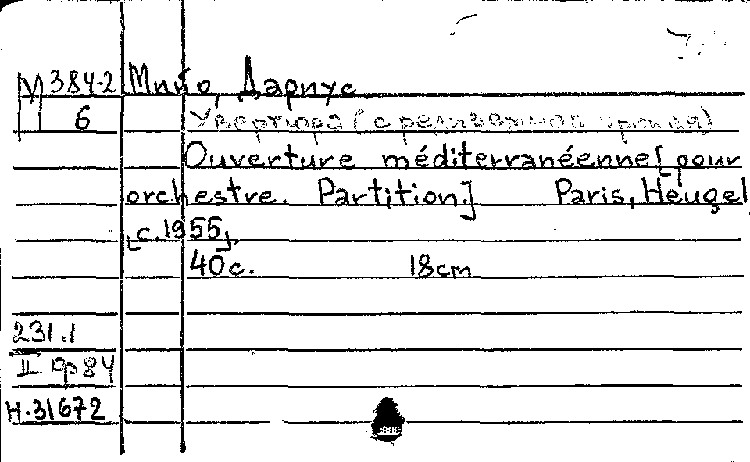 М 384-2 Мийо, Дариус
6 Увертюра (средиземноморская)
Ouverture méditerranéenne [pour
orchestre. Partition.] Paris, Heugel
[c.1955].
40 с. 18cm
231.1
II ор 84
Н.31672